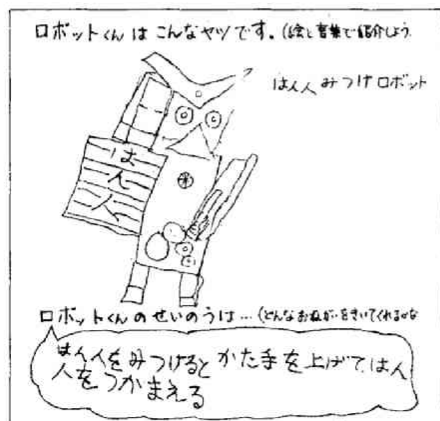 ロボットくんは こんなヤツです。(絵と言葉で紹介しよう
はん人みつけロボット
はん人
ロボットくんのせいのうは…(どんなおねがいをきいてくれるかな
はん人をみつけると かた手を上げてはん
人をつかまえる